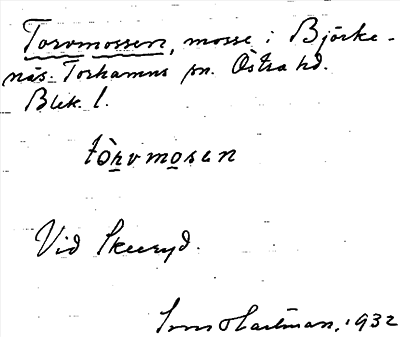 Torvmossen, mosse i Björke-
näs. Torhamns sn. Östra hd.
Blek. l.
tòrvmosen
Vid Skeeryd.
Sven Hartman, 1932